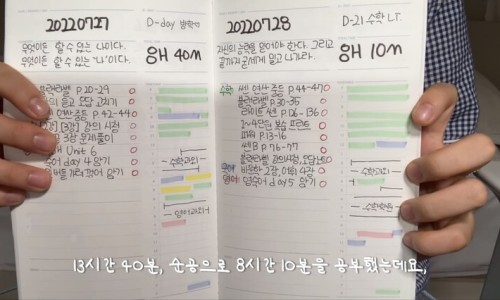 20220727
D-day 방학식
무엇이든 할 수 있는 나이다.
무엇이든 할 수 있는 '나'이다.
8H 40m
블랙라벨 p.20-29
듣고 오답 고치기
쎈 연산 중등 p.42-44
[3강] 강의 시청
3강 문제풀이
Unit 6
day 4 암기
암기
수학과외
영어과외
20220728
D-21 수학 L.T.
자신의 능력을 믿어야 한다. 그리고
끝까지 굳세게 밀고 나가라.
8H 10m
수학
쎈 연산 중등 p.44-47
블랙라벨 p.30-35
라이트 쎈 p.126-136
1~4단원 복습 프린트
p.13-16
쎈B p.76-77
블랙라벨
영어
2강, 어휘 4강
day 5 암기
수학과외
수학학원
13시간 40분, 순공으로 8시간 10분을 공부했는데요,